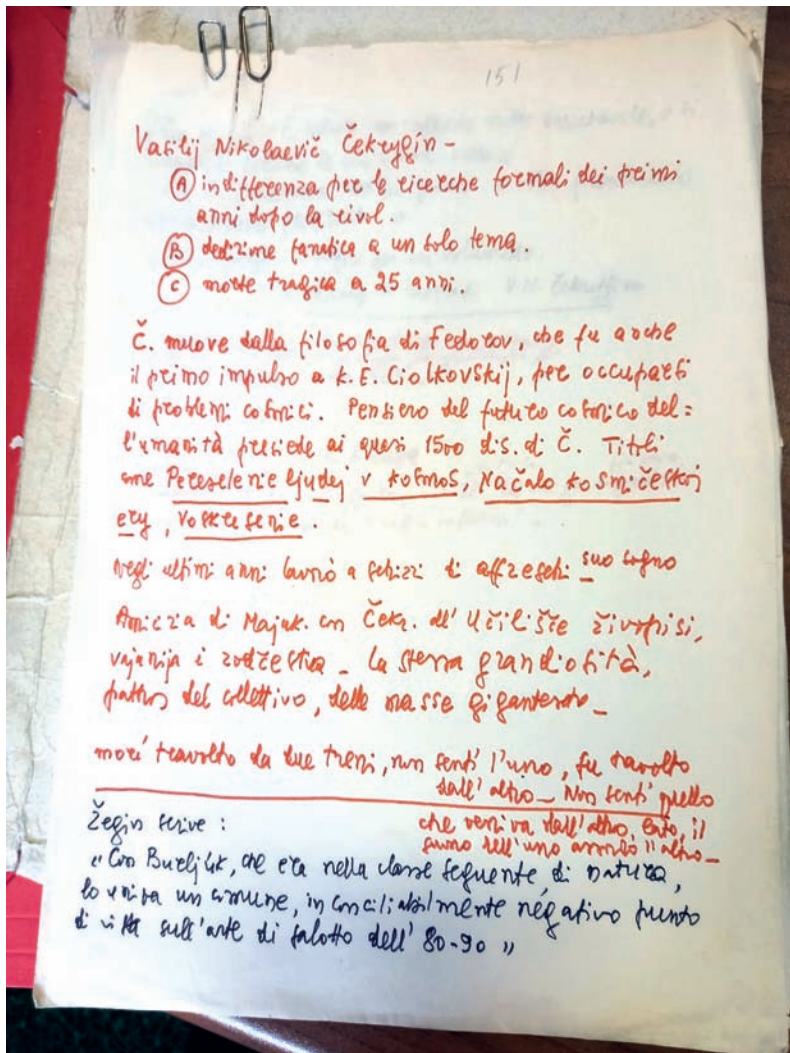 151
Vasilij Nikolaevič Čekrygin -
A indifferenza per le ricerche formali dei primi
anni dopo la rivol.
B dedizione fanatica a un solo tema.
C morte tragica a 25 anni.
Č. muove dalla filosofia di Fedorov, che fu anche
il primo impulso a K. E. Ciolkovskij, per occuparsi
di problemi cosmici. Pensiero del futuro cosmico del=
l'umanità presiede ai quasi 1500 dis. di Č. Titoli
come Pereselenie ljudej v kosmos, Načalo kosmičeskoj
ery, Voskresenie.
negli ultimi anni lavorò a schizzi di affreschi - suo sogno
Amicizia di Majak. con Čekr. all'Učilišče živopisi,
vajanija i zodčestva - la stessa grandiosità,
pathos del collettivo, delle masse gigantesche -
morì travolto da due treni, non sentì l'uno, fu travolto
dall'altro - Non sentì quello
che veniva dall'altro lato, il
suono dell'uno assorbì l'altro -
Žegin scrive:
"Con Burljuk, che era nella classe seguente di natura,
lo univa un comune, inconciliabilmente negativo punto
di vista sull'arte di salotto dell'80-90"